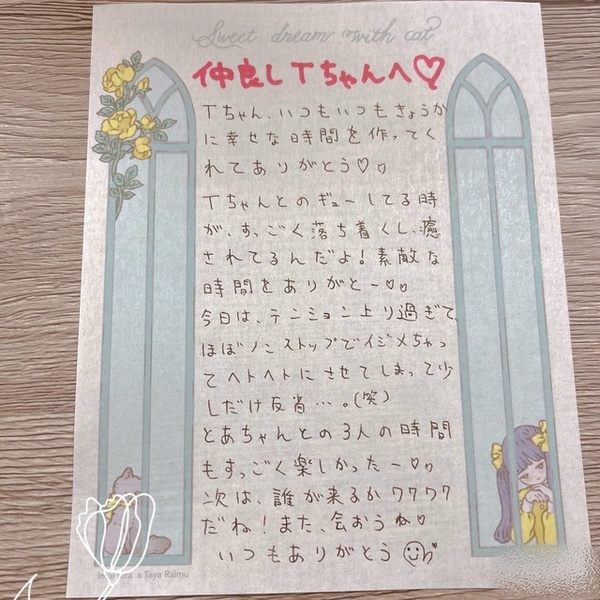 Sweet dream with cat
仲良しTちゃんへ♡
Tちゃん、いつもいつもきょうか
に幸せな時間を作ってく
れてありがとう♡
Tちゃんとのギューしてる時
が、すっごく落ち着くし、癒
されてるんだよ!素敵な
時間をありがとー♡
今日は、テンション上り過ぎて、
ほぼノンストップでイジメちゃっ
てヘトヘトにさせてしまって少
しだけ反省…。(笑)
とあちゃんとの3人の時間
もすっごく楽しかったー♡
次は、誰が来るかワクワク
だね!また、会おうね♡
いつもありがとう
x Taya Raimu